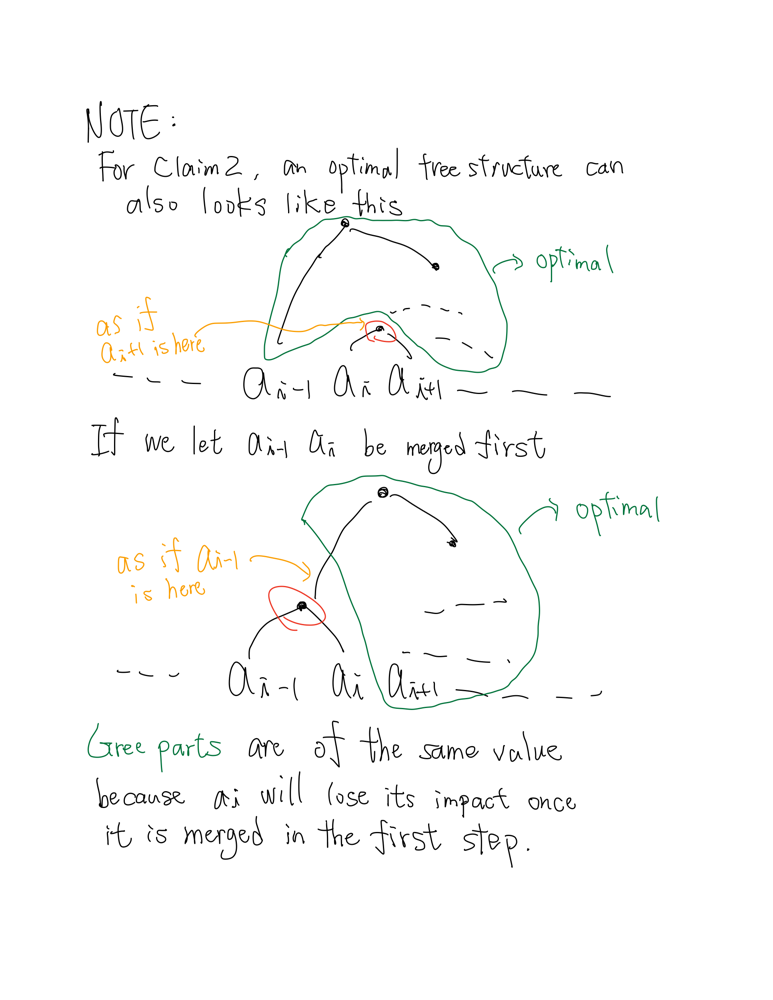 NOTE:
For Claim2, an optimal tree structure can
also looks like this
optimal
as if
a_{i+1} is here
a_{i-1} a_i a_{i+1}
If we let a_{i-1} a_i be merged first
optimal
as if a_{i-1}
is here
a_{i-1} a_i a_{i+1}
Gree parts are of the same value
because a_i will lose its impact once
it is merged in the first step.